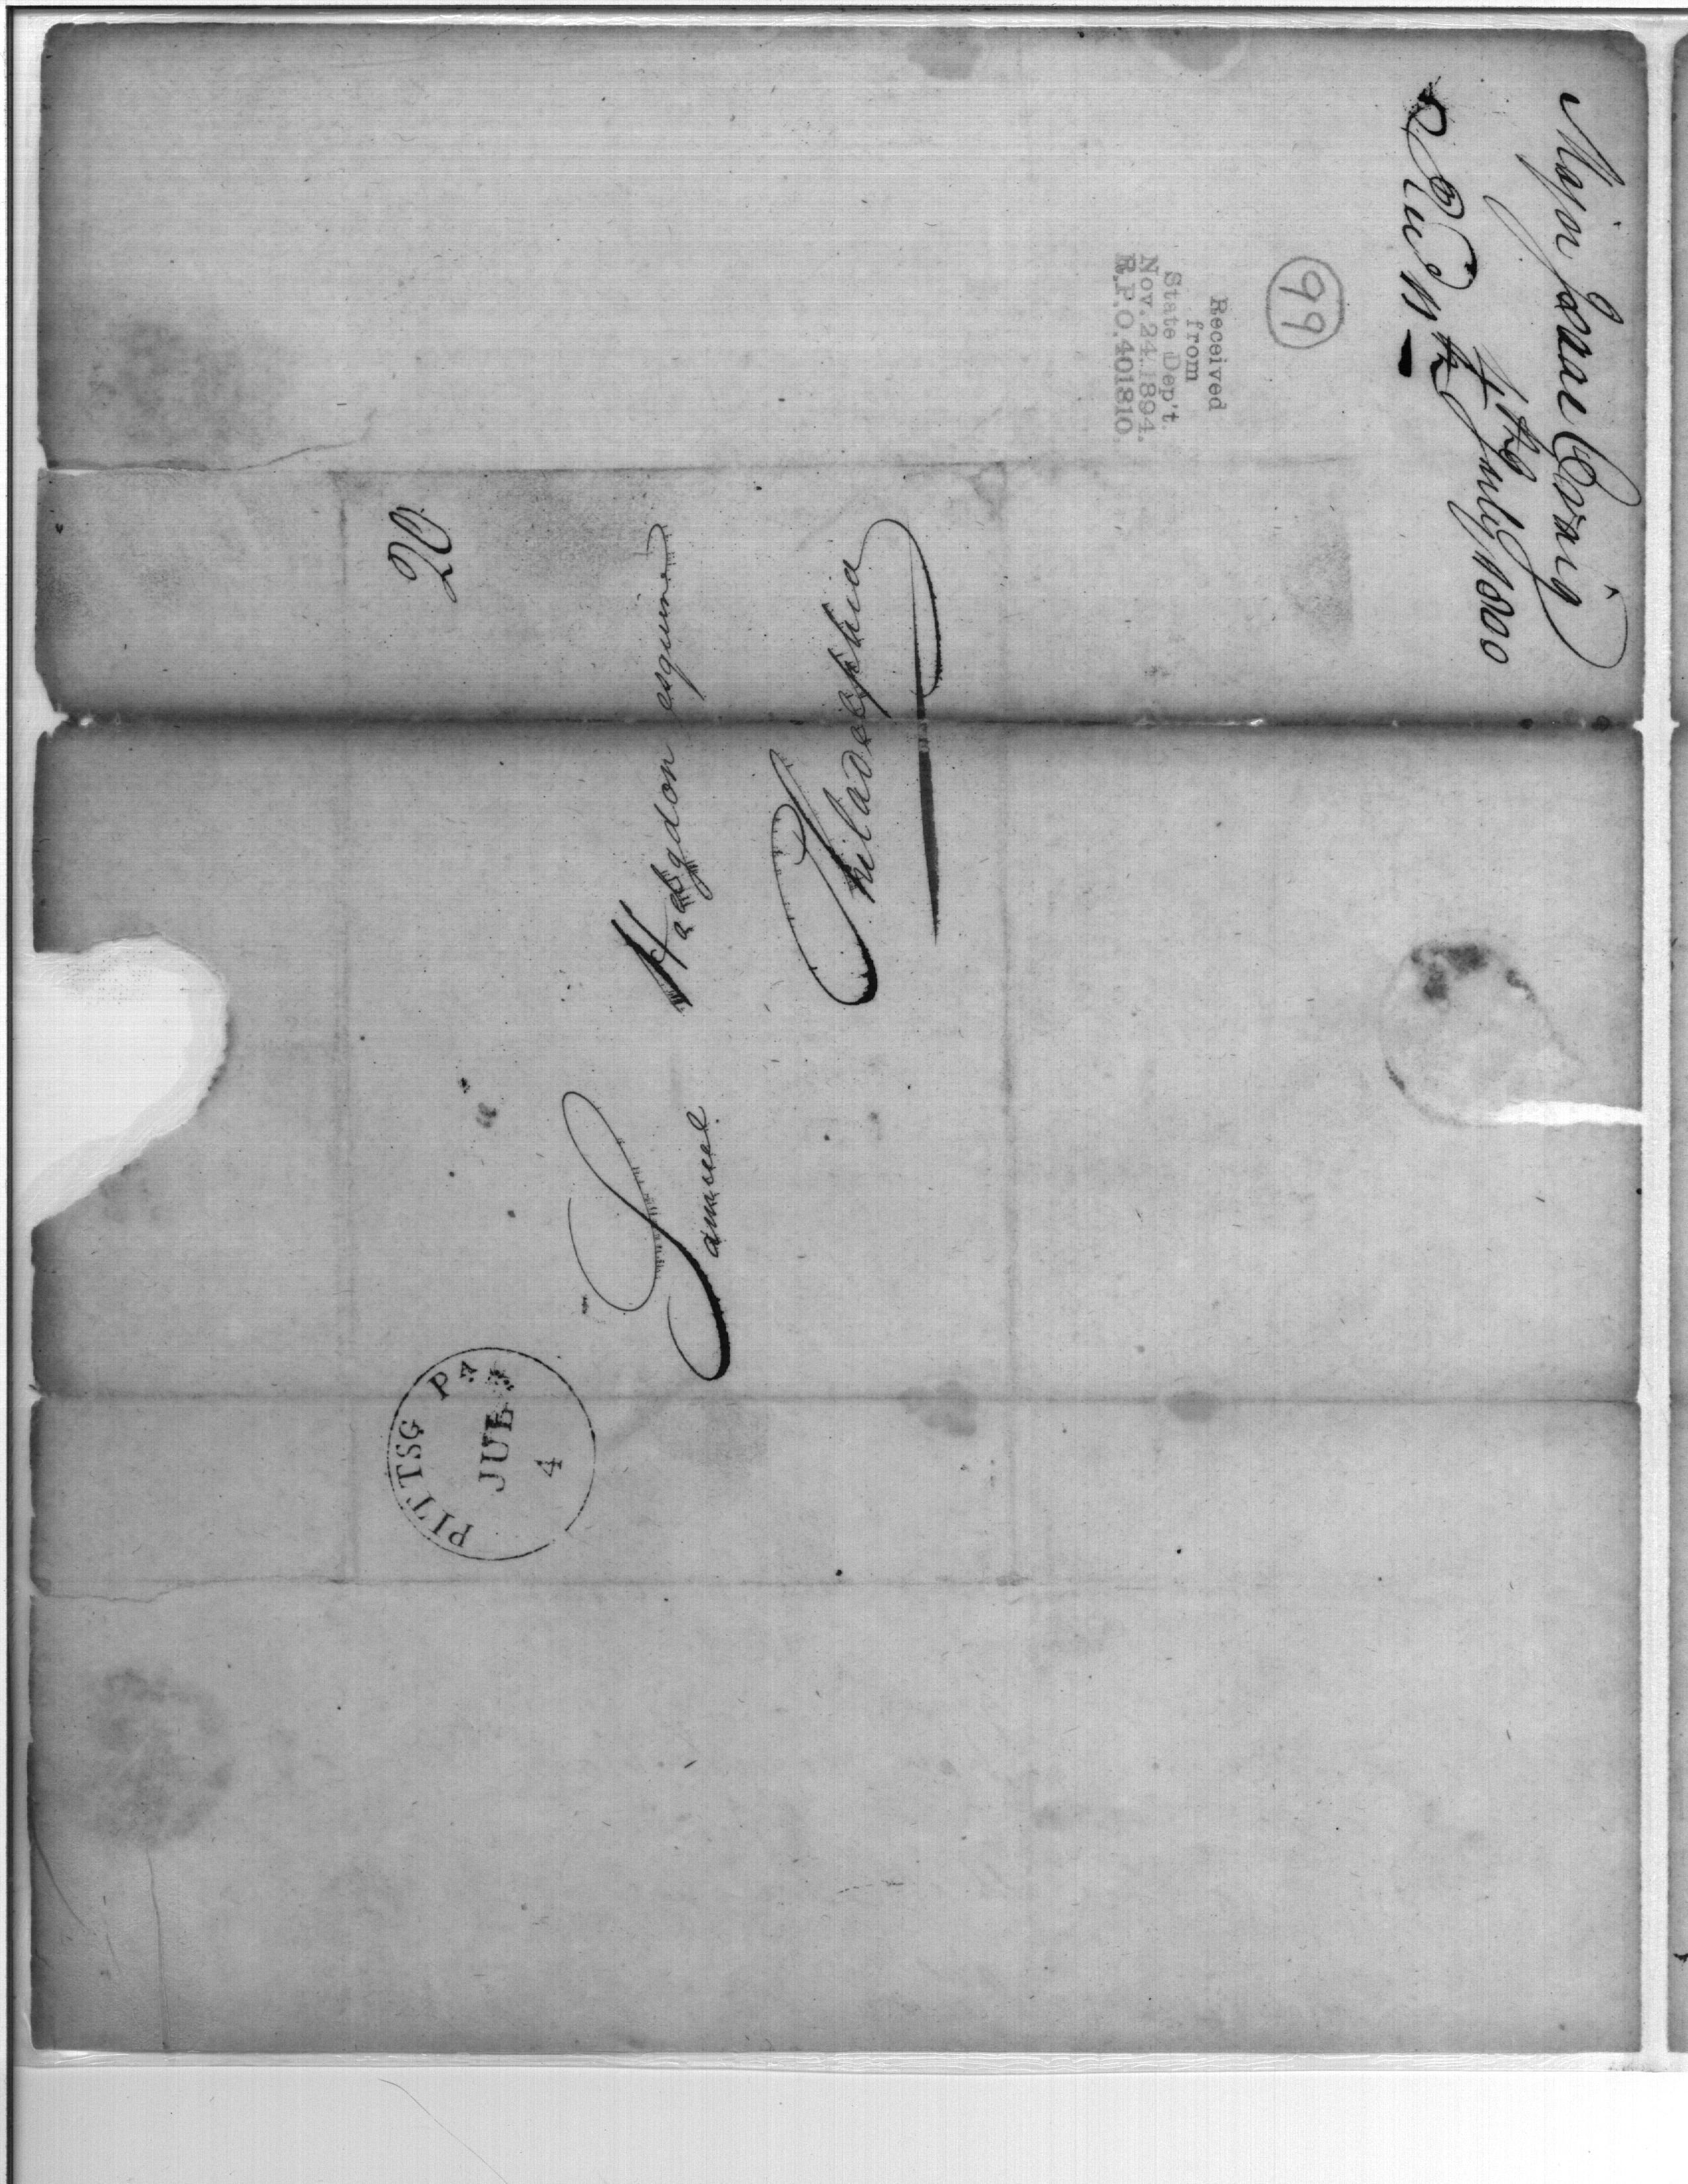 Major Isaac Craig
4th July 1800
Recd 11th
99
Received
from
State Dep't.
Nov. 24. 1894.
R.P.O. 401810.
20
Samuel Hodgdon esquire
Philadelphia
PITTSG PA
JUL
4